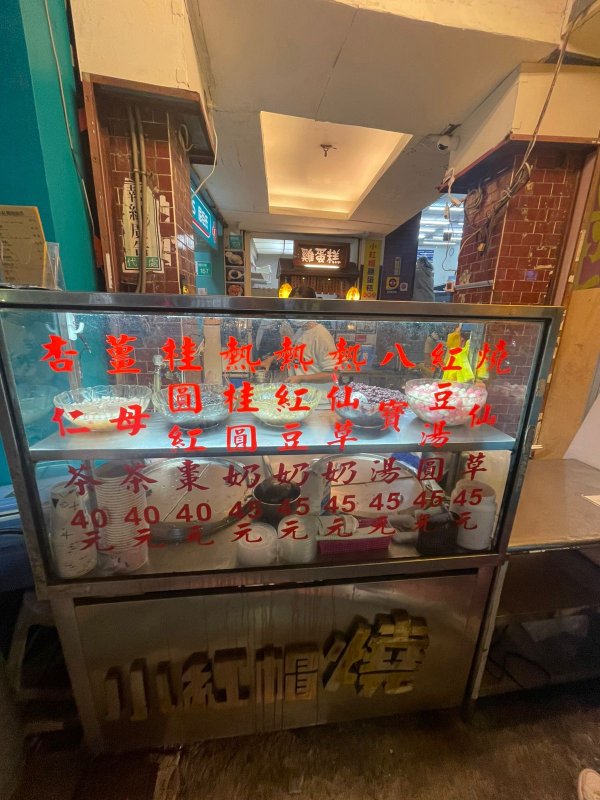 燒仙草45元
紅豆湯圓45元
八寶湯45元
熱仙草奶45元
熱紅豆奶45元
熱桂圓奶45元
桂圓紅棗40元
薑母茶40元
杏仁茶40元
小紅帽燒
小紅帽雞蛋糕